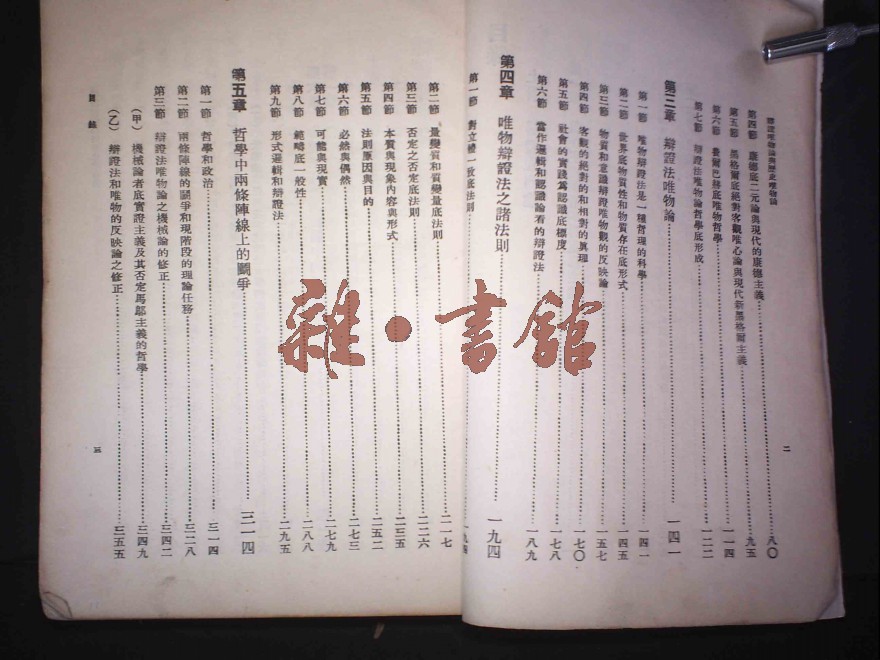 辯證唯物論與歷史唯物論
第四節 康德底二元論與現代的康德主義 八〇
第五節 黑格爾底絕對客觀唯心論與現代新黑格爾主義 九五
第六節 費爾巴赫底唯物哲學 一一四
第七節 辯證法唯物論哲學底形成 一二二
第三章 辯證法唯物論 一四一
第一節 唯物辯證法是一種哲理的科學 一四一
第二節 世界底物質性和物質存在底形式 一四五
第三節 物質和意識辯證唯物觀的反映論 一五七
第四節 客觀的絕對的和相對的眞理 一七〇
第五節 社會的實踐爲認識底標度 一七八
第六節 當作邏輯和認識論看的辯證法 一八九
第四章 唯物辯證法之諸法則 一九四
第一節 對立體一致底法則 一九四
二
第二節 量變質和質變量底法則 二一七
第三節 否定之否定底法則 二二六
第四節 本質與現象內容與形式 二三五
第五節 法則原因與目的 二五二
第六節 必然與偶然 二七三
第七節 可能與現實 二七九
第八節 範疇底一般性 二八八
第九節 形式邏輯和辯證法 二九五
第五章 哲學中兩條陣線上的鬭爭 三一四
第一節 哲學和政治 三一四
第二節 兩條陣線的鬭爭和現階段的理論任務 三二八
第三節 辯證法唯物論之機械論的修正 三四二
(甲) 機械論者底實證主義及其否定馬鄔主義的哲學 三四九
(乙) 辯證法和唯物的反映論之修正 三五五
目錄
三
雜·書館